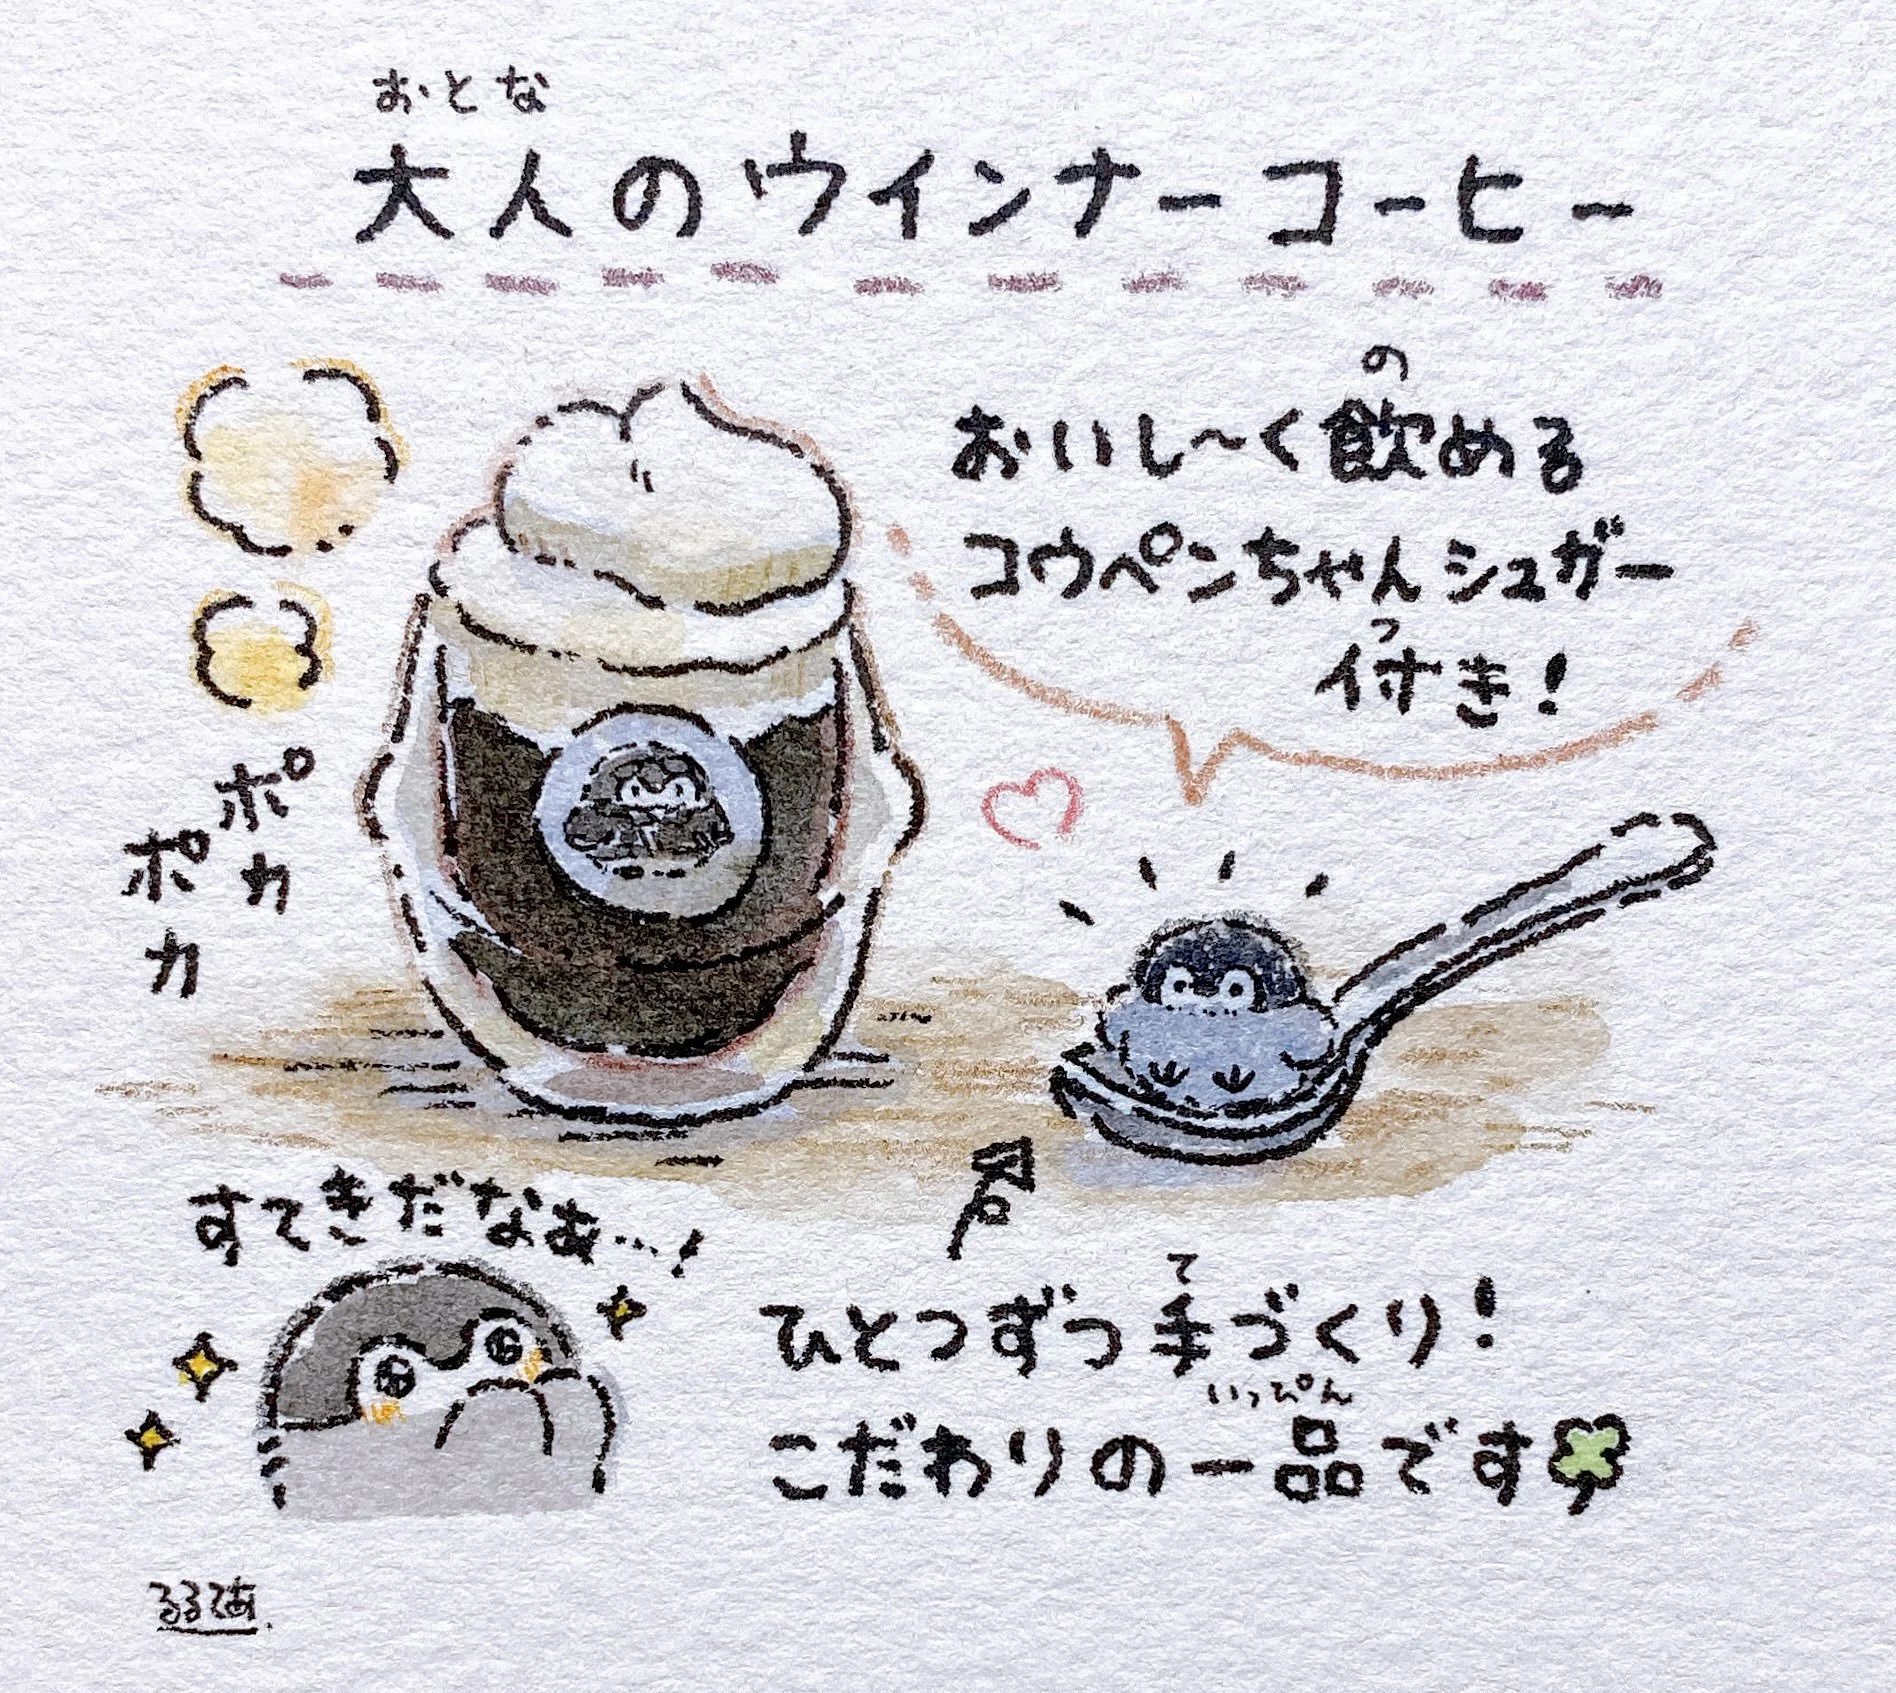 おとな
大人のウインナーコーヒー
の
おいし〜く飲める
コウペンちゃんシュガー
つ
付き!
ポカ
ポカ
すてきだなあ…!
て
ひとつずつ手づくり!
いっぴん
こだわりの一品です
るるてあ